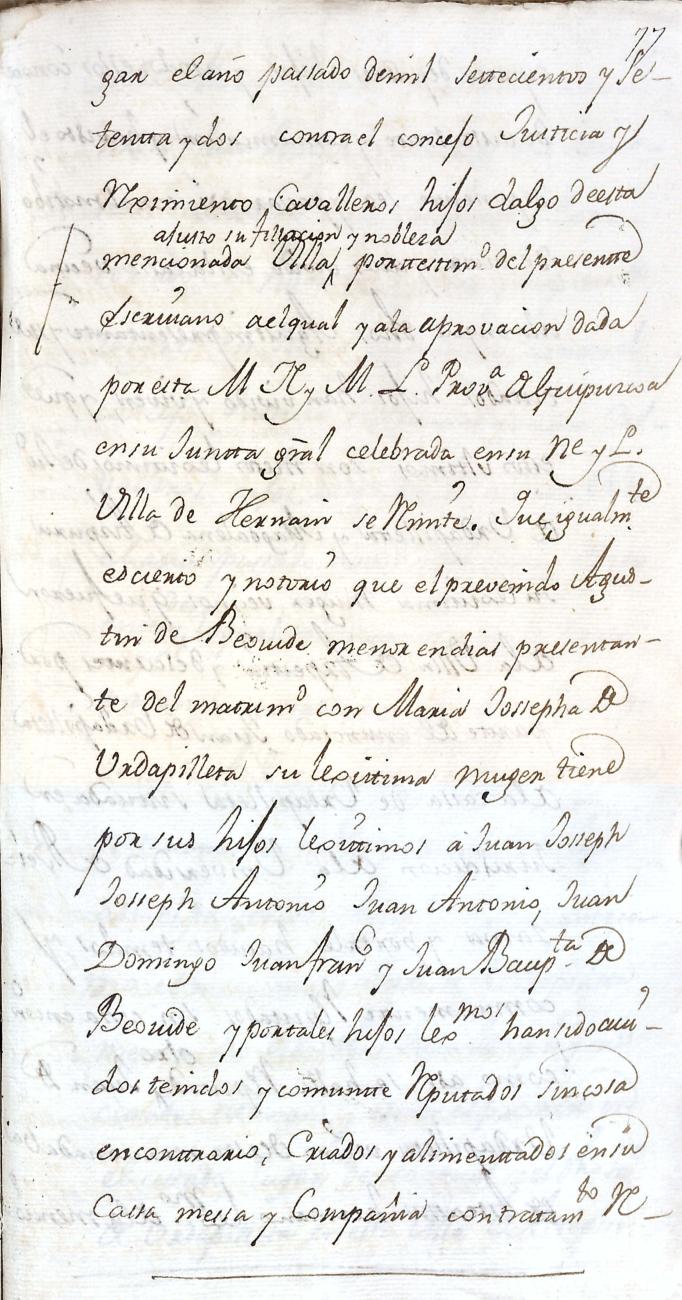 77
gar el año passado de mil settecientos y se-
tentta y dos contra el concejo Justicia y
Reximiento Cavalleros hijos dalgo de esta
asusto su filiacion y nobleza
mencionada Villa ^ por ttestim.º del presentte
Escrivano a el qual y a la aprovacion dada
por esta M N y M. L. Prov.ª de Guipuzcoa
en su Juntta gral celebrada en su Ne y L.
Villa de Hernani se Rmite. Que igualm.te
es cierto y notorio que el prevenido Agus-
tin de Beovide menor en dias presentan-
te del matrim.º con Maria Josepha de
Urdapilleta su lexittima muger tiene
por sus hijos lexittimos a Juan Joseph
Joseph Antonio Juan Antonio, Juan
Domingo Juan fran.co y Juan Baup.ta de
Beovide y por tales hijos lex.mos han sido avi-
dos tenidos y comuntte Reputados sin cosa
en conttrario, Criados y alimenttados en su
Cassa messa y Compañia con tratam.to R-